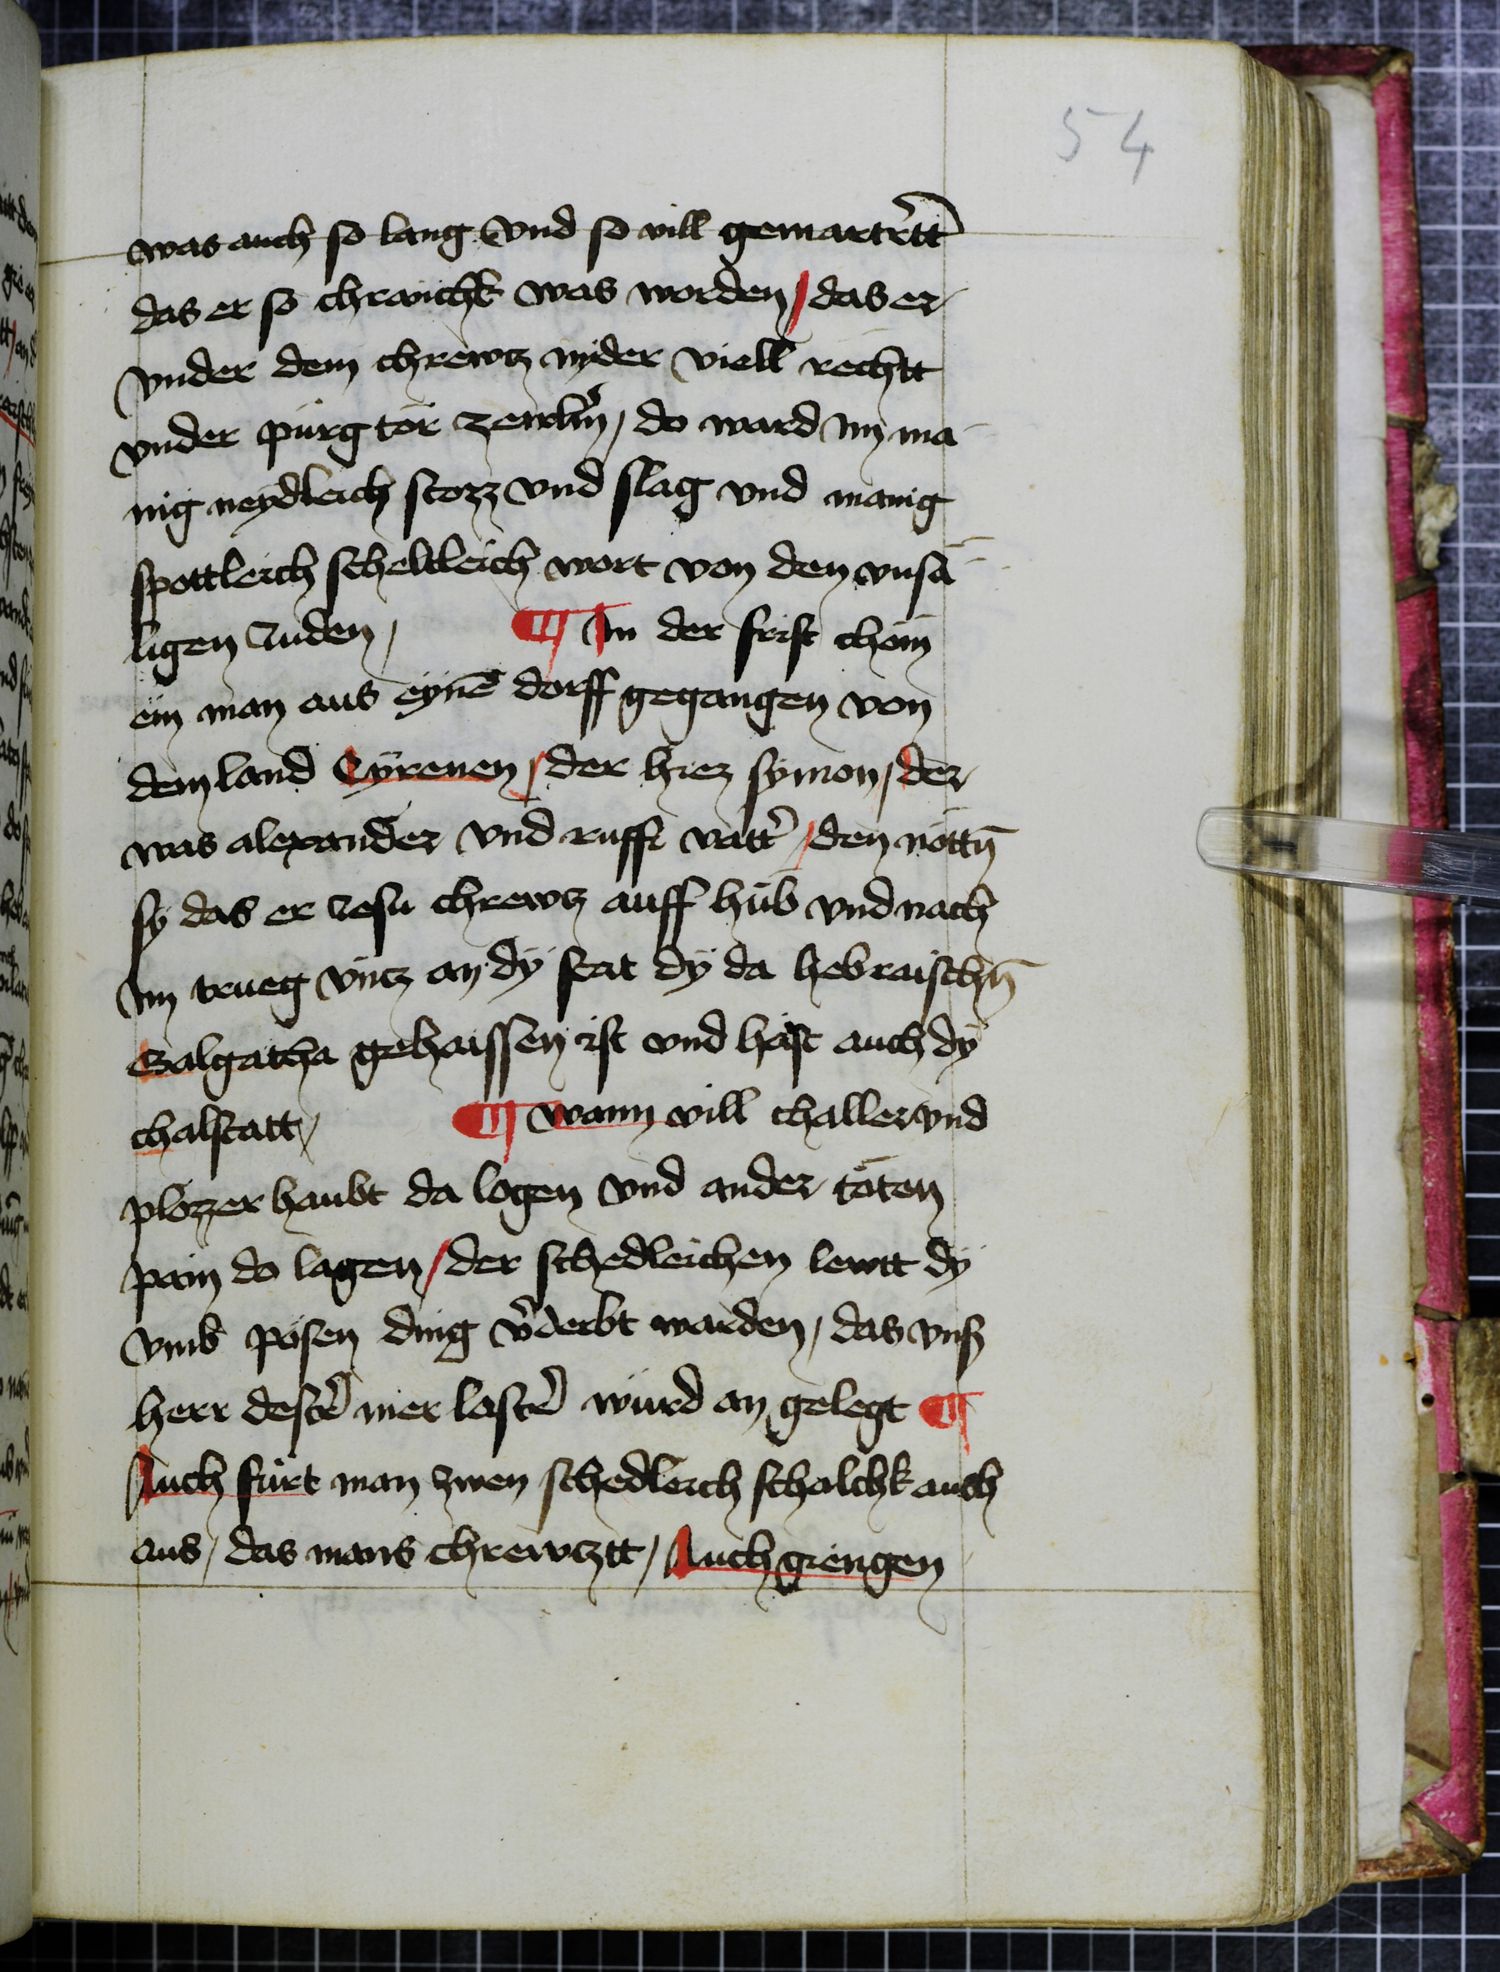 54
was auch so lang vnd so vill gemartˀtt
das er so chranchk was worden / das er
vnder dem chrewtz nyder viell rechtt
vnder pürg tör ze / do ward im ma
nig neydleich stozz vnd slag vnd manig
spottleich scheltleich wort von den vnsä
ligen Juden / ¶ In der frist chom
ein man aus eynē dorff gegangen von
dem land Cÿrenen / der hiez sÿmon / der
was alexander vnd ruffi vattˀ / den nöttn̄
sy das er Jesu chrewtz auff hüb vnd nach
Im trueg vntz an dÿ stat dÿ da hebraischn̄
Galgatha gehaissen ist vnd haist auch dÿ
chalstatt / ¶ wann vill challer vnd
plozzer haubt da logen vnd ander töten
pain do lagen / der schedleichen lewtt dÿ
vmb pösen ding vˀderbt warden / das vnsˀ
herr destˀ mer lastˀ würd an gelegt ¶
Auch fürt man zwen schedleich schalchk auch
aus / das mans chrewtztt / Auch giengen